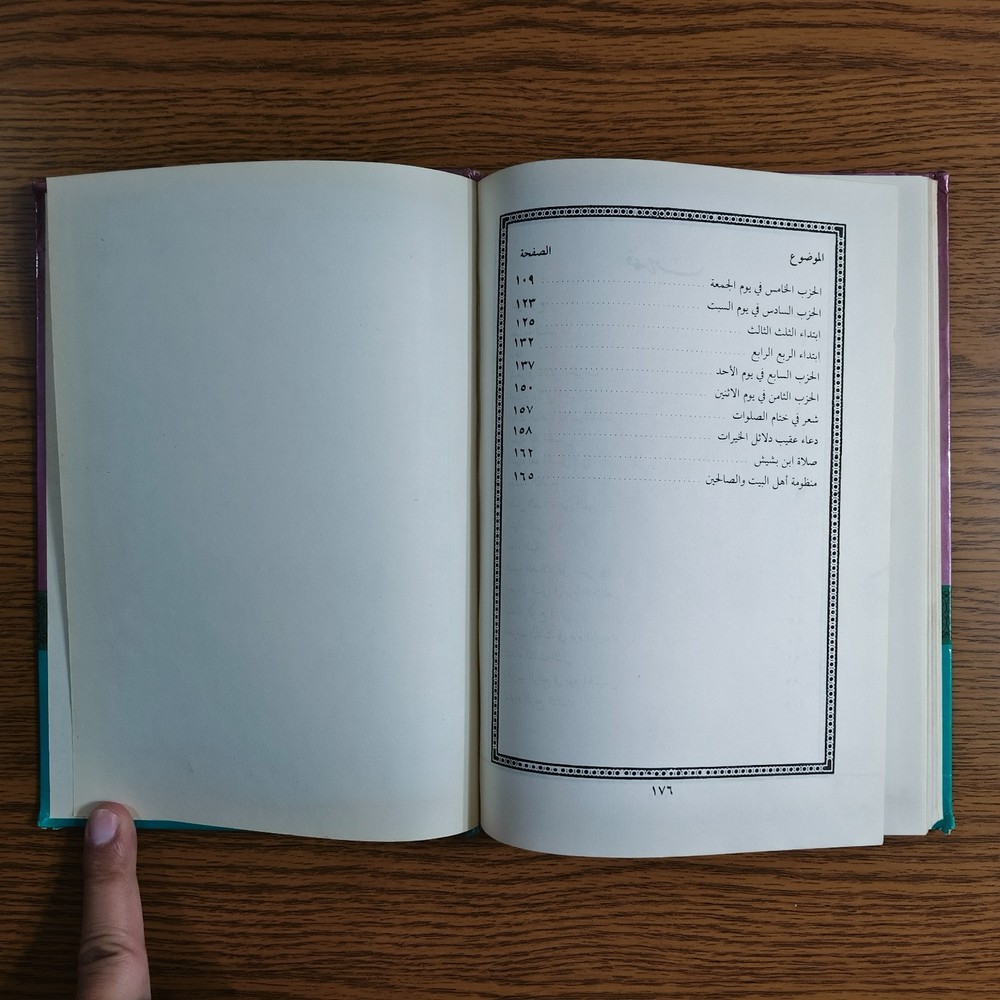 الموضوع الصفحة
الحزب الخامس في يوم الجمعة ١٠٩
الحزب السادس في يوم السبت ١٢٣
ابتداء الثلث الثالث ١٢٥
ابتداء الربع الرابع ١٣٢
الحزب السابع في يوم الأحد ١٣٧
الحزب الثامن في يوم الاثنين ١٥٠
شعر في ختام الصلوات ١٥٧
دعاء عقيب دلائل الخيرات ١٥٨
صلاة ابن بشيش ١٦٢
منظومة أهل البيت والصالحين ١٦٥
١٧٦